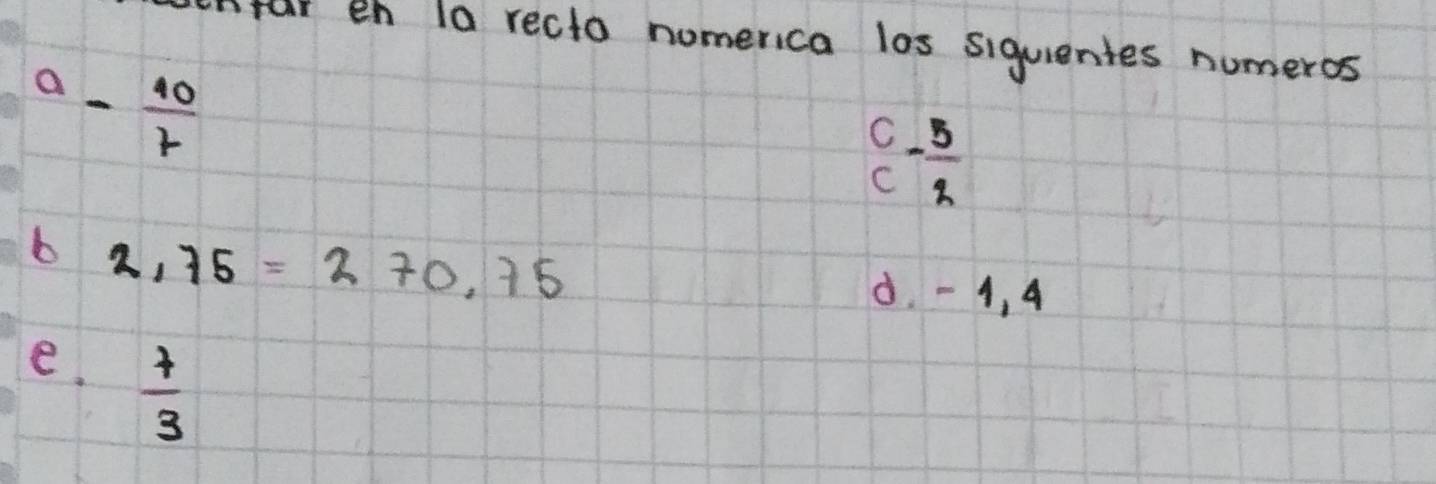 en la recta numerica los siguientes numeros
a - 10/7
C - 5/2
C
b 2,75 = 2 + 0,75
d. - 1,4
e. 7/3